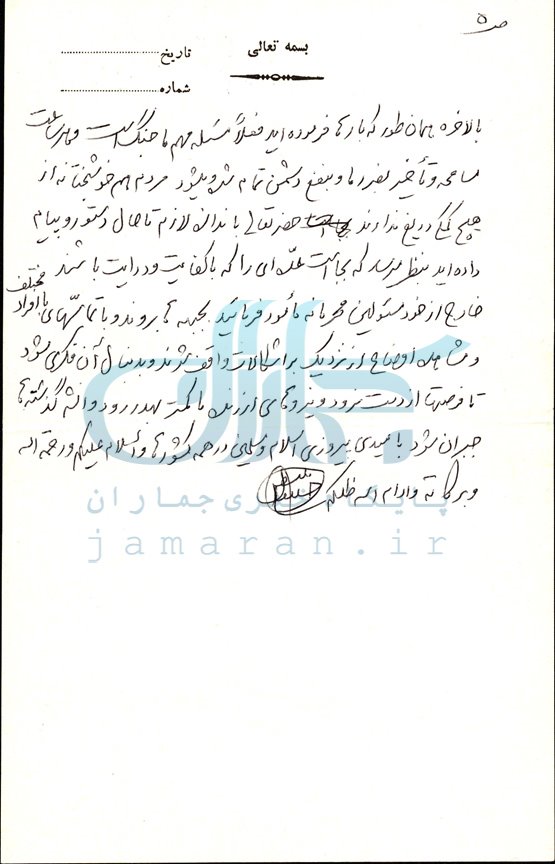 ص ۵
بسمه تعالی
تاریخ
شماره
بالاخره همان طور که بارها فرموده اید فعلاً مسئله مهم ما جنگ است و هر ساعت
مسامحه و تأخیر بضرر ما و بنفع دشمن تمام شده و میشود مردم هم خوشبختانه از
هیچ کمکی دریغ ندارند حضرتعالی باندازه لازم تا حال دستور و پیام
داده اید بنظر میرسد که بجا است عدّه ای را که با کفایت و درایت باشند
خارج از خود مسئولین محرمانه مأمور فرمائید بجبهه ها بروند و با تماسهای با افراد مختلف
و مشاهده اوضاع از نزدیک بر اشکالات واقف شوند و بدنبال آن فکری شود
تا فرصتها از دست نرود و نیروهای ارزنده ما کمتر بهدر رود و انشاءالله گذشته ها
جبران شود بامید پیروزی اسلام و مسلمین در همه کشورها والسلام علیکم و رحمة الله
وبرکاته وادام الله ظلکم
پایگاه خبری جماران
jamaran.ir